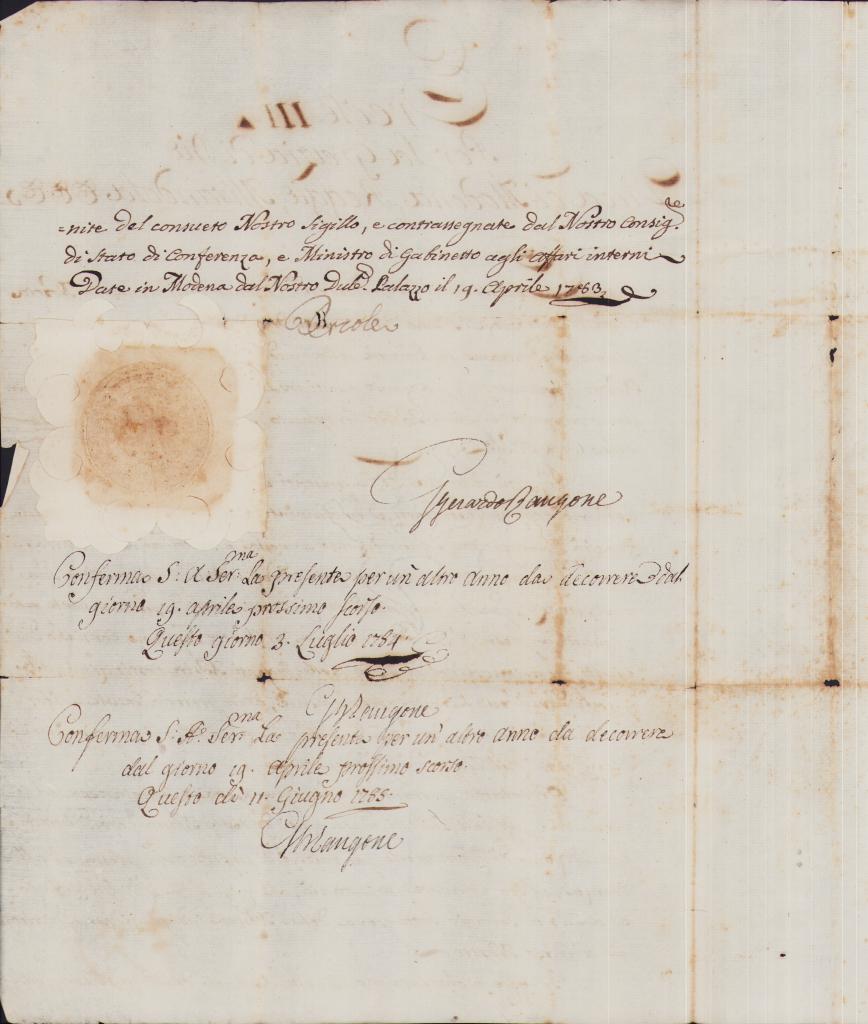 =nite del consueto Nostro Sigillo, e contrassegnate dal Nostro Consig.re
di Stato di Conferenza, e Ministro di Gabinetto agli affari interni
Date in Modena dal Nostro Ducl. Palazzo il 19. Aprile 1783.
Ercole
Gherardo Rangone
Conferma S: A Ser.ma La presente per un' altro anno da decorrere dal
giorno 19. aprile prossimo scorso.
Questo giorno 3. Luglio 1784.
GhRangone
Conferma S: A. Ser.ma La presente per un' altro anno da decorrere
dal giorno 19. Aprile prossimo scorso.
Questo dì 11. Giugno 1785.
GhRangone